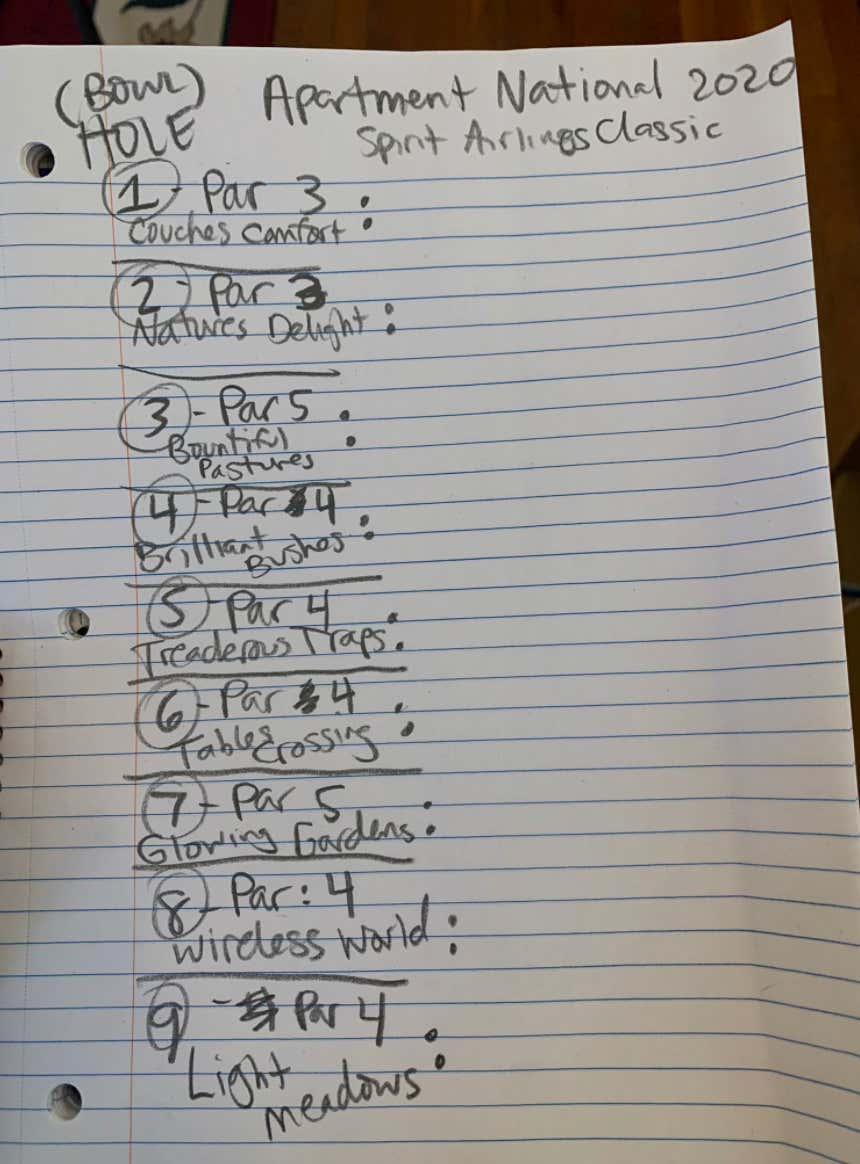 (BOWL) Apartment National 2020
HOLE Spirit AirlingsClassic
1 - Par 3 :
Couches Comfort
2 - Par 3
Natures Delight :
3 - Par 5 :
Bountiful
Pastures
4 - Par 4 :
Brilliant
Bushes
5 - Par 4 :
Treaderous Traps
6 - Par 4 :
Tables
Crossing
7 - Par 5 :
Glowing Gardens
8 - Par : 4
Wireless World :
9 - Par 4 :
Light
meadows